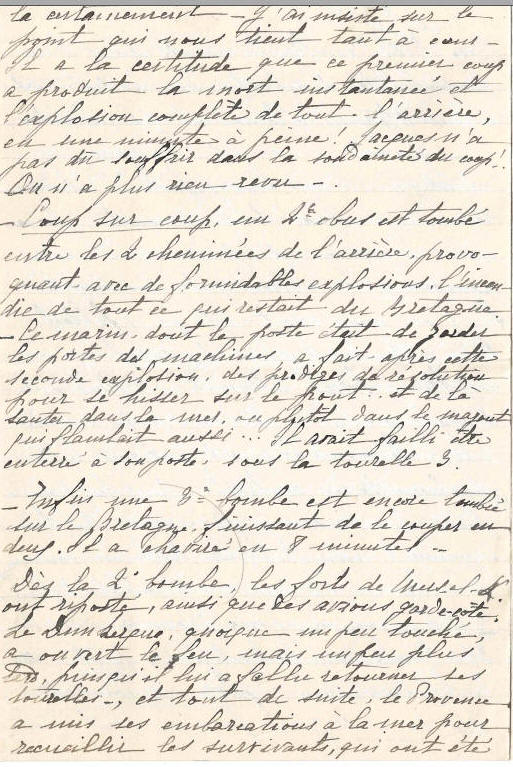 la certainement – J'ai insisté sur le
point qui nous tient tant à cœur –
Il a la certitude que ce premier coup
a produit la mort instantanée et
l'explosion complète de tout l'arrière,
en une minute à peine! Jacques n'a
pas dû souffrir dans la soudaineté du coup!.
On n'a plus rien revu –.
– Coup sur coup, un 2e obus est tombé
entre les 2 cheminées de l'arrière, provo-
quant avec de formidables explosions, l'incen-
die de tout ce qui restait du Bretagne.
– Ce marin, dont le poste était de garder
les portes des machines, a fait après cette
seconde explosion, des prodiges de résolution
pour se hisser sur le pont et de là
sauter dans la mer, ou plutôt dans le mazout
qui flambait aussi... Il avait failli être
enterré à son poste, sous la tourelle 3.
– Enfin une 3e bombe est encore tombée
sur le Bretagne, finissant de le couper en
deux. Il a chaviré en 8 minutes –
Dès la 2e bombe, les forts de Mers el-K
ont riposté, ainsi que des avions garde-côte.
Le Dunkerque, quoique un peu touché,
a ouvert le feu, mais un peu plus
puisqu'il lui a fallu retourner ses
tourelles –, et tout de suite, le Provence
a mis ses embarcations à la mer pour
recueillir les survivants, qui ont été